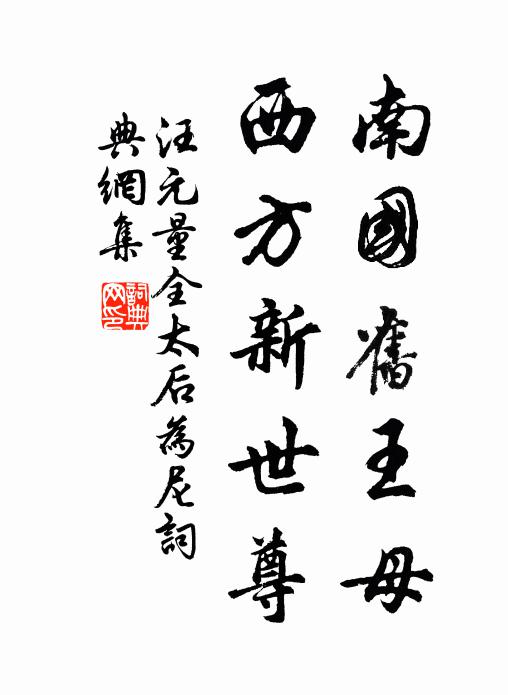 南國舊王母
西方新世尊
汪元量全太后為尼詞
典網集
詞典網印